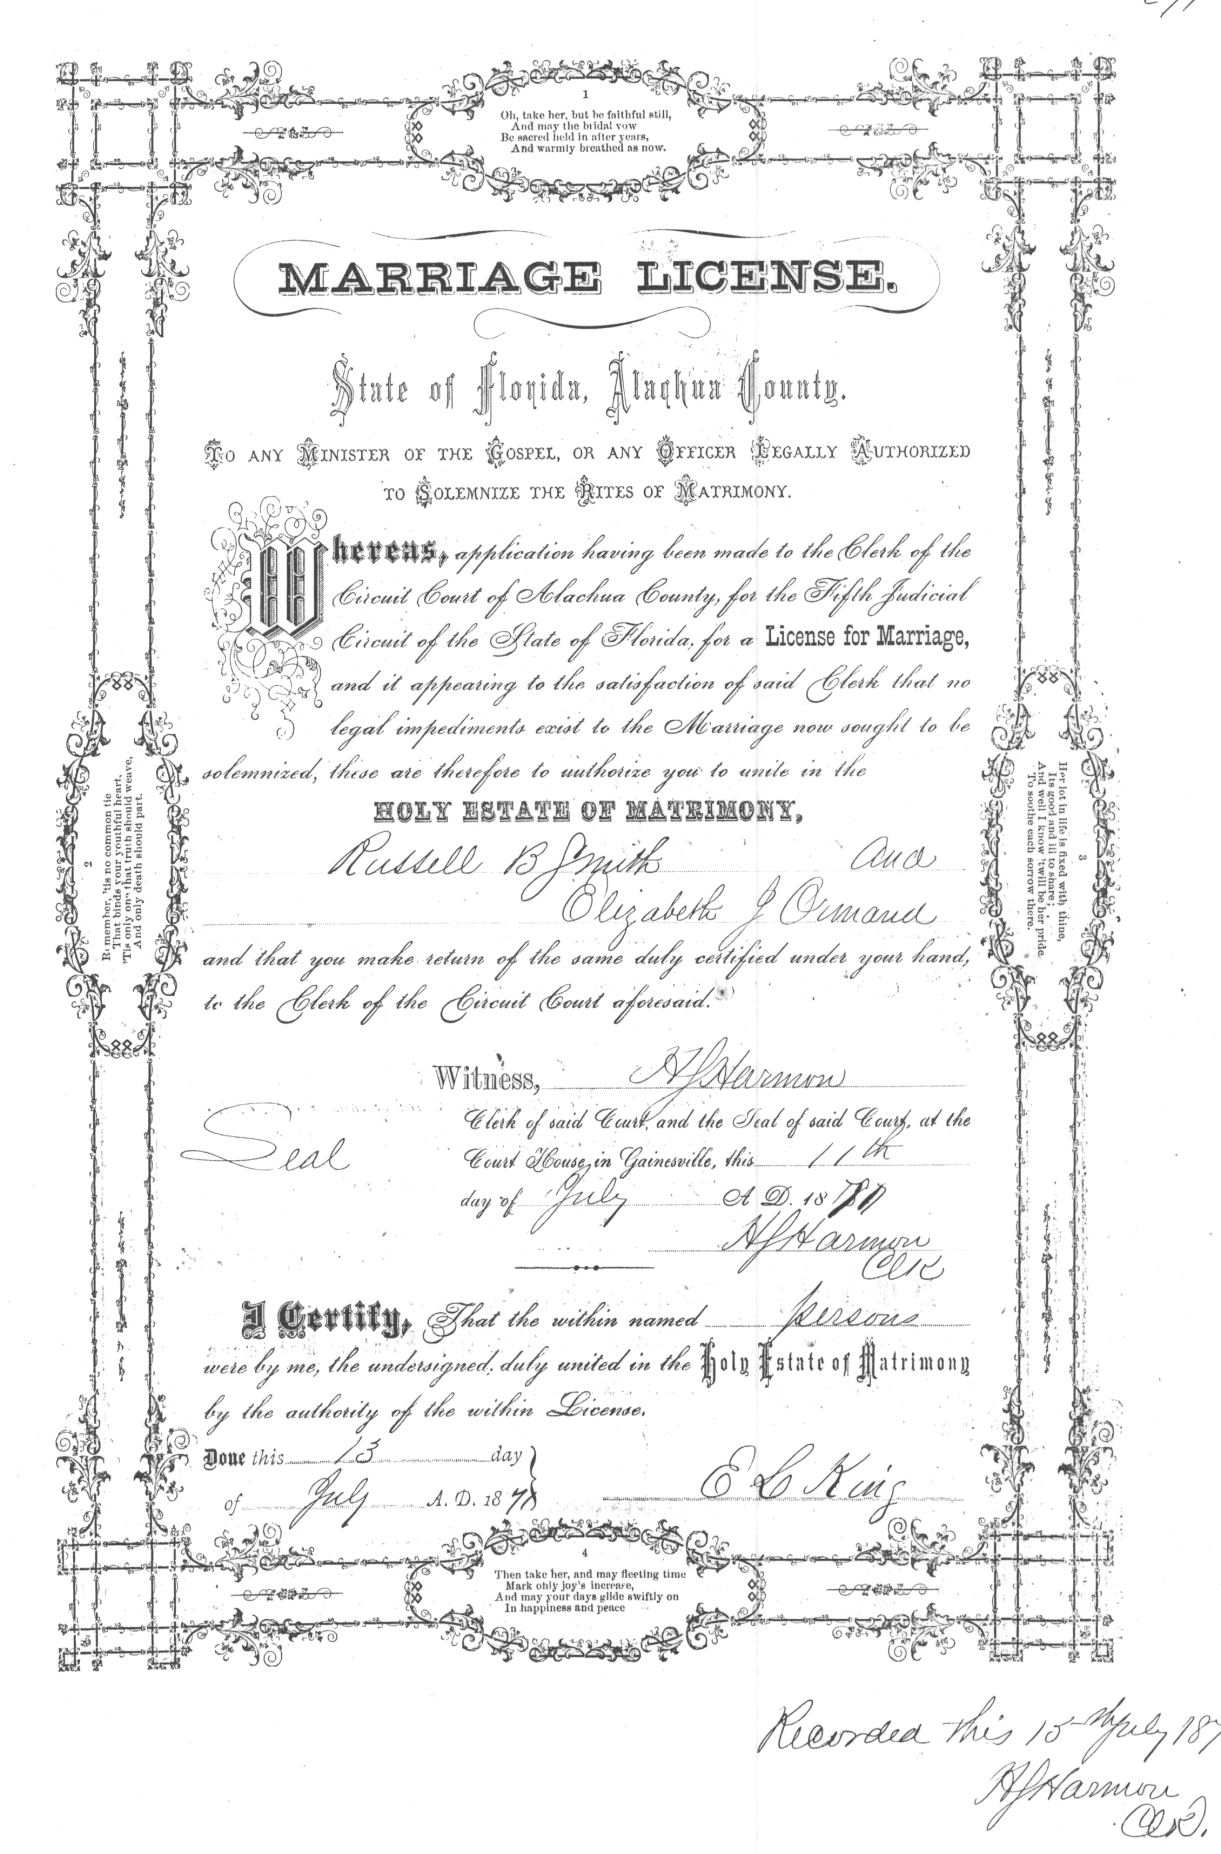 1
Oh, take her, but be faithful still,
And may the bridal vow
Be sacred held in after years,
And warmly breathed as now.
MARRIAGE LICENSE.
State of Florida, Alachua County.
TO ANY MINISTER OF THE GOSPEL, OR ANY OFFICER LEGALLY AUTHORIZED
TO SOLEMNIZE THE RITES OF MATRIMONY.
Whereas, application having been made to the Clerk of the
Circuit Court of Alachua County, for the Fifth Judicial
Circuit of the State of Florida, for a License for Marriage,
and it appearing to the satisfaction of said Clerk that no
legal impediments exist to the Marriage now sought to be
solemnized, these are therefore to authorize you to unite in the
HOLY ESTATE OF MATRIMONY,
Russell B Smith And
Elizabeth J Ormand
and that you make return of the same duly certified under your hand,
to the Clerk of the Circuit Court aforesaid.
2
Remember, 'tis no common tie
That binds your youthful heart,
'Tis only one that truth should weave,
And only death should part.
3
Her lot in life is fixed with thine,
Its good and ill to share;
And well I know 'twill be her pride
To soothe each sorrow there.
Witness, HJHarmon
Clerk of said Court, and the Seal of said Court, at the
Seal
Court House, in Gainesville, this 11th
day of July A D. 18
HJHarmon
Clk
I Certify, That the within named persons
were by me, the undersigned, duly united in the Holy Estate of Matrimony
by the authority of the within License.
Done this 13 day
of July A. D. 18
E L King
4
Then take her, and may fleeting time
Mark only joy's increase,
And may your days glide swiftly on
In happiness and peace
Recorded this 15th July 187
HJHarmon
Clk.